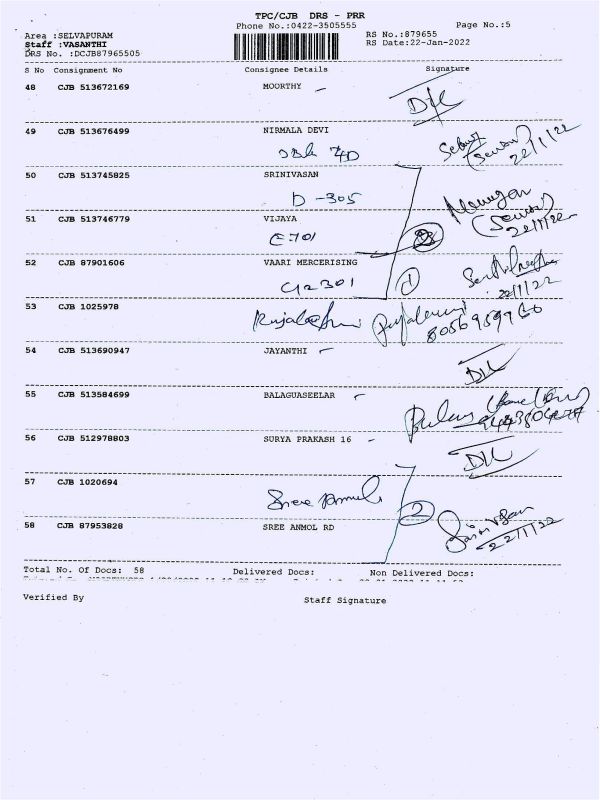 TPC/CJB DRS - PRR
Phone No.:0422-3505555
Page No.:5
Area :SELVAPURAM
RS No.:879655
Staff :VASANTHI
RS Date:22-Jan-2022
DRS No. :DCJB87965505
S No Consignment No Consignee Details Signature
48 CJB 513672169 MOORTHY
D/L
49 CJB 513676499 NIRMALA DEVI
22/1/22
50 CJB 513745825 SRINIVASAN
D-305
51 CJB 513746779 VIJAYA
E701
22/1/22
52 CJB 87901606 VAARI MERCERISING
G2301
1
22/1/22
53 CJB 1025978
8056959960
54 CJB 513690947 JAYANTHI
D/L
55 CJB 513584699 BALAGUASEELAR
56 CJB 512978803 SURYA PRAKASH 16
D/L
57 CJB 1020694
Sree Anmol
2
58 CJB 87953828 SREE ANMOL RD
22/1/22
Total No. Of Docs: 58 Delivered Docs: Non Delivered Docs:
Verified By Staff Signature